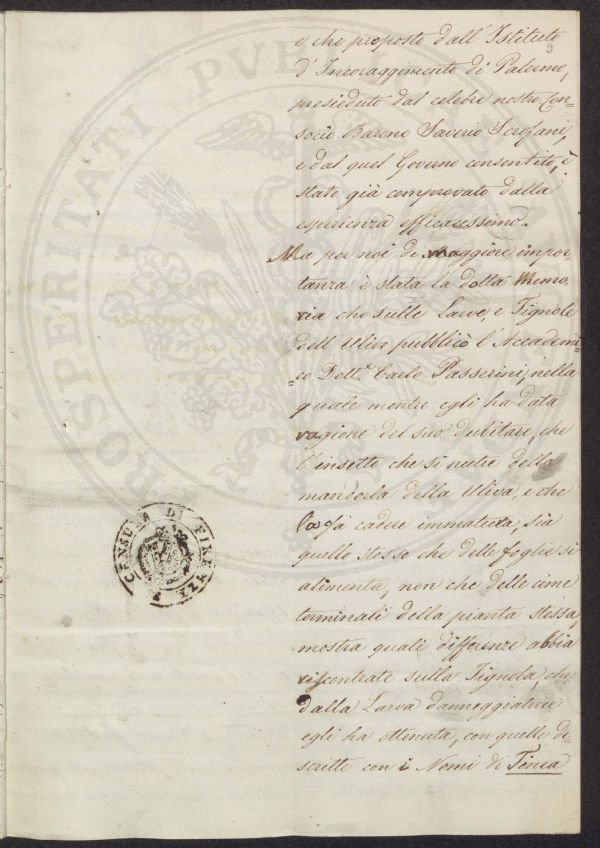 9
e che proposto dall' Istituto
d' Incoraggimento di Palermo,
presieduto dal celebre nostro Con=
socio Barone Saverio Scrofani,
e dal quel Governo consentito, è
stato già comprovato dalla
esperienza efficacissimo.
Ma per noi di maggiore impor
tanza è stata la dotta Memo
ria che sulle Larve, e Tignole
dell' Ulivo pubblicò l' Accademi=
=co Dott.e Carlo Passerini, nella
quale mentre egli ha data
ragione del suo dubitare, che
l' insetto che si nutre della
mandorla della Uliva, e che
la fà cadere immatura, sia
quello stesso che delle foglie si
alimenta, non che delle cime
terminali della pianta stessa,
mostra quali differenze abbia
riscontrate sulla Tignola, che
dalla Larva danneggiatrice
egli ha ottenuta, con quelle de=
scritte con i Nomi di Tinea
CENSURA DI FIRENZE
PROSPERITATI PUBLI